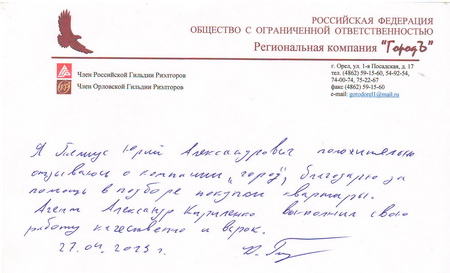 РОССИЙСКАЯ ФЕДЕРАЦИЯ
ОБЩЕСТВО С ОГРАНИЧЕННОЙ ОТВЕТСТВЕННОСТЬЮ
Региональная компания "ГородЪ"
Член Российской Гильдии Риэлторов
Член Орловской Гильдии Риэлторов
г. Орел, ул. 1-я Посадская, д. 17
тел. (4862) 59-15-60, 54-92-54,
74-00-74, 75-22-67
факс (4862) 59-15-60
e-mail: gorodorel1@mail.ru
Я Юрий Александрович положительно
отзываюсь о компании "город", благодарю за
помощь в подборе покупки квартиры.
Агент Александр Кириленко выполнил свою
работу качественно и